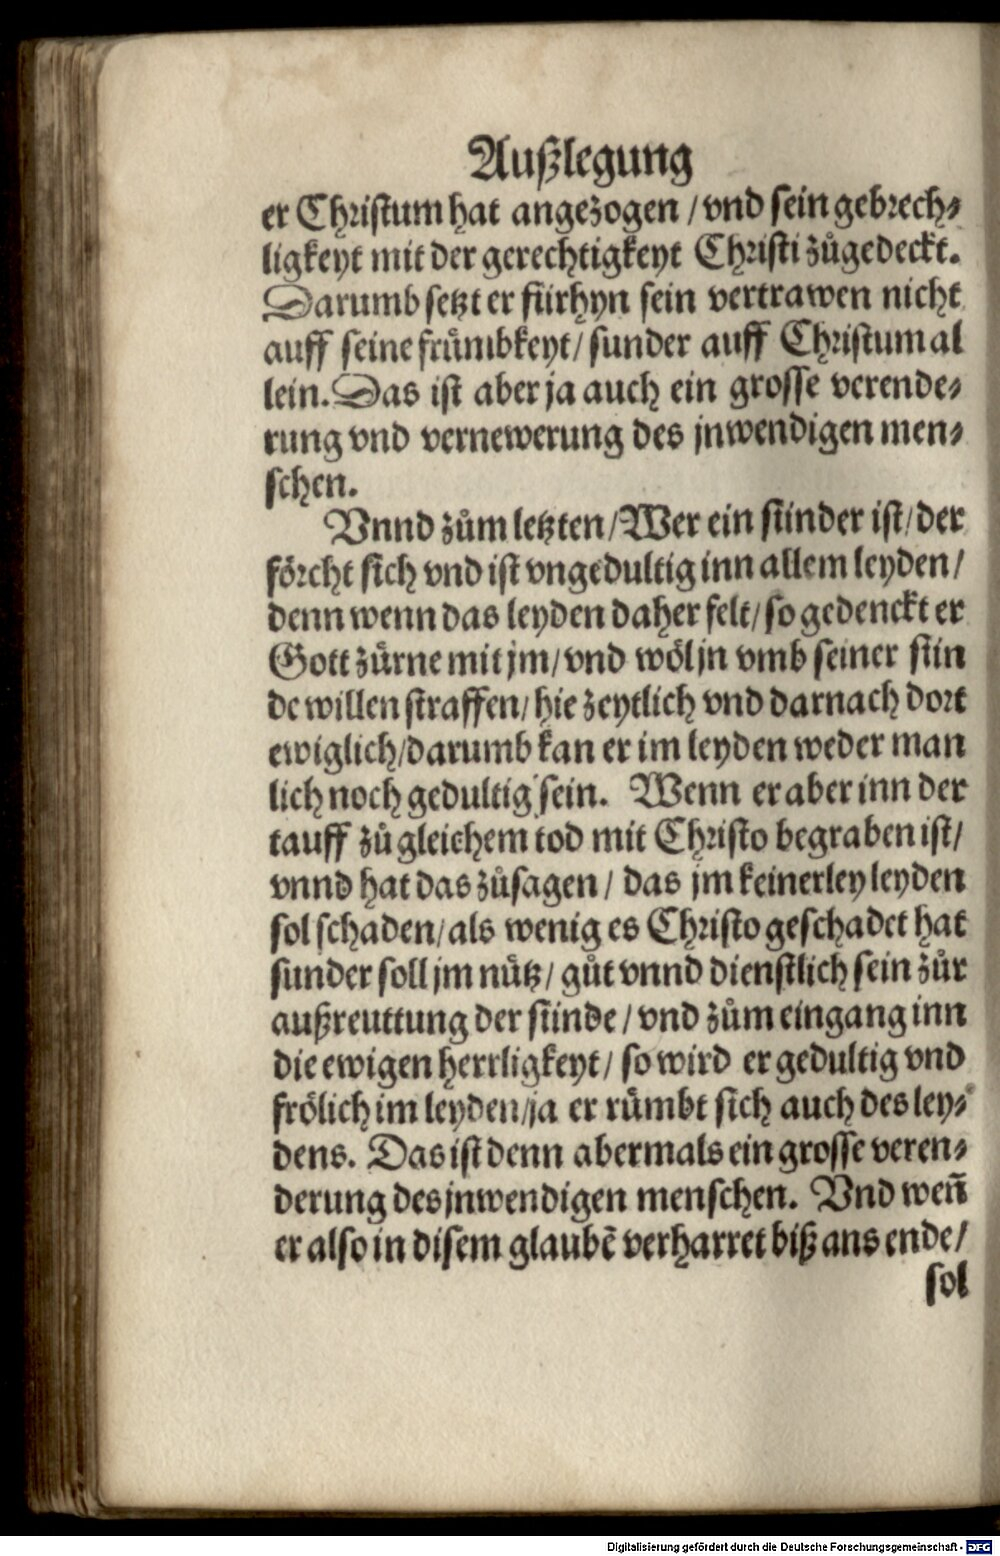 Außlegung
er Christum hat angezogen / vnd sein gebrech⸗
ligkeyt mit der gerechtigkeyt Christi zůgedeckt.
Darumb setzt er fürhyn sein vertrawen nicht
auff seine frům̃bkeyt / sunder auff Christum al
lein. Das ist aber ja auch ein grosse verende⸗
rung vnd vernewerung des jnwendigen men⸗
schen.
Vnnd zům letzten / Wer ein sünder ist / der
förcht sich vnd ist vngedultig inn allem leyden /
denn wenn das leyden daher felt / so gedenckt er
Gott zürne mit jm / vnd wöl jn vmb seiner sün
de willen straffen / hie zeytlich vnd darnach dort
ewiglich / darumb kan er im leyden weder man
lich noch gedultig sein. Wenn er aber inn der
tauff zů gleichem tod mit Christo begraben ist /
vnnd hat das zůsagen / das jm keinerley leyden
sol schaden / als wenig es Christo geschadet hat
sunder soll jm nütz / gůt vnnd dienstlich sein zůr
außreuttung der sünde / vnd zům eingang inn
die ewigen herrligkeyt / so wird er gedultig vnd
frölich im leyden / ja er rümbt sich auch des ley⸗
dens. Das ist denn abermals ein grosse veren⸗
derung des jnwendigen menschen. Vnd weñ
er also in disem glaubẽ verharret biß ans ende /
sol
Digitalisierung gefördert durch die Deutsche Forschungsgemeinschaft - DFG